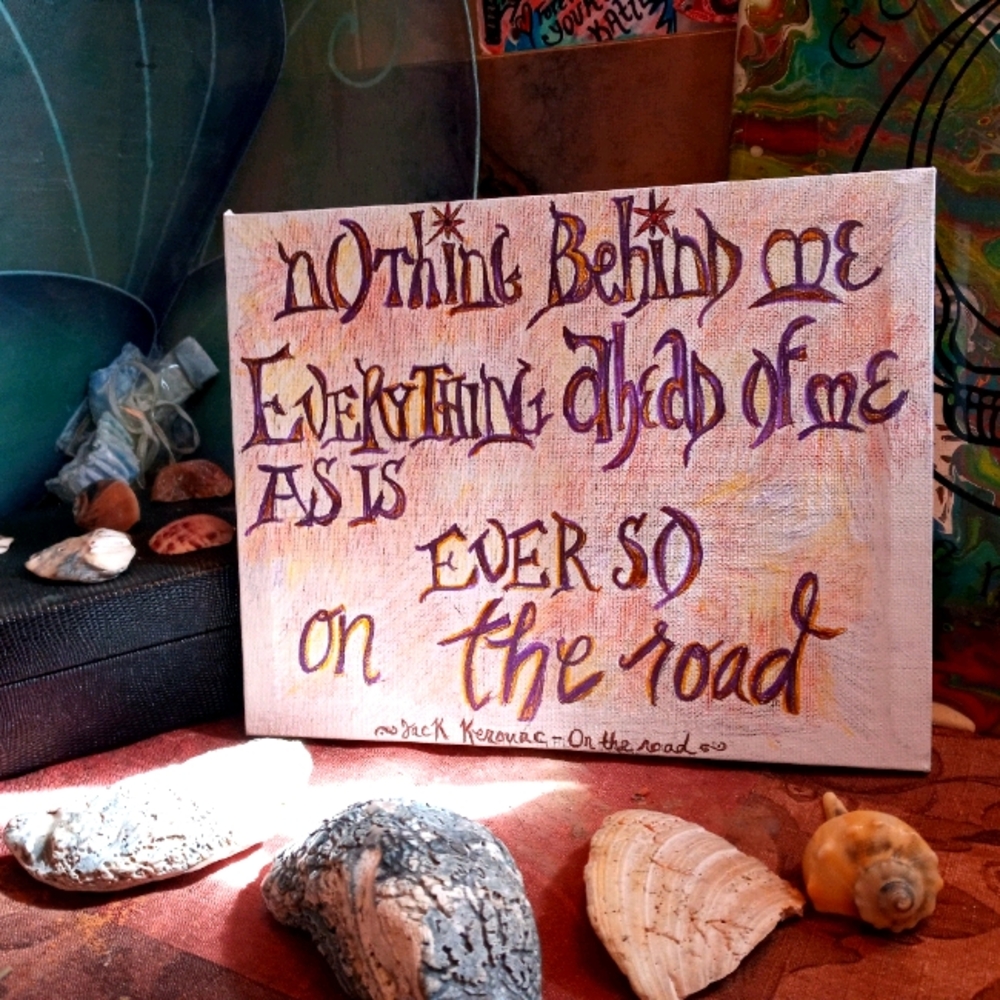 YOUR
nOThinG BehinD mE
EVERYTHING AheaD OF mE
AS IS
EVER SO
on the road
Jack Kerouac - On the road